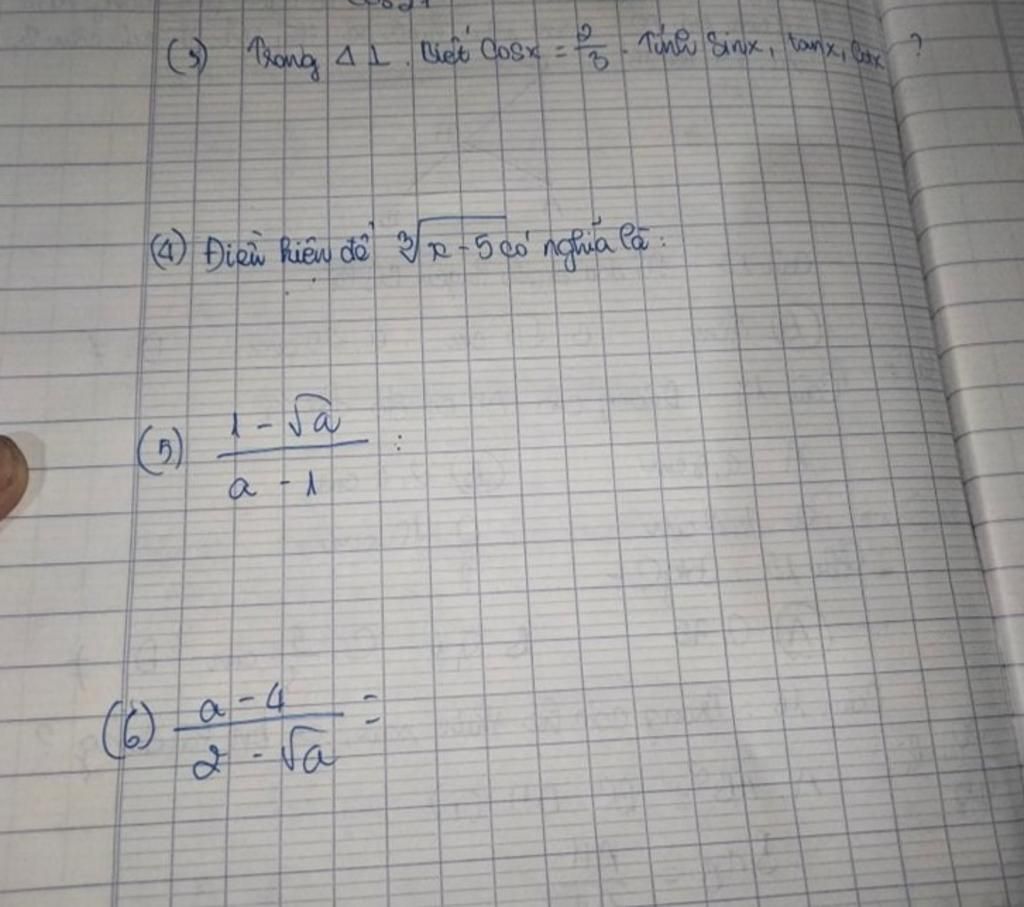 (3) Trong Δ⊥. Biết Cosx = 2/3. Tính Sinx, tanx, Cotx ?
(4) Điều kiện để ∛(x-5) có nghĩa là:
(5) (1-√a)/(a-1) :
(6) (a-4)/(2-√a) =